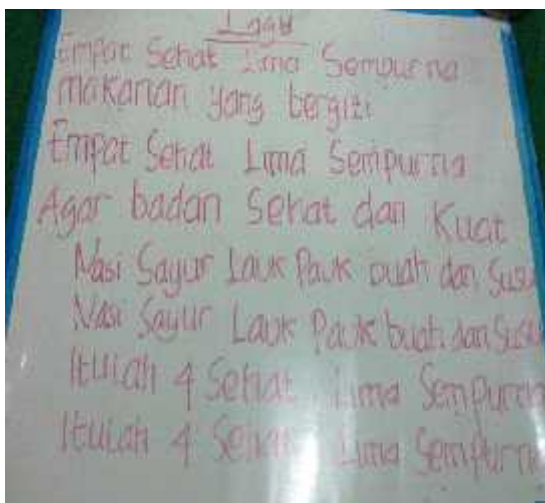 Lagu
Empat Sehat Lima Sempurna
makanan yang bergizi
Empat Sehat Lima Sempurna
Agar badan Sehat dan Kuat
Nasi Sayur Lauk Pauk buah dan Susu
Nasi Sayur Lauk Pauk buah dan Susu
Itulah 4 Sehat Lima Sempurna
Itulah 4 Sehat Lima Sempurna